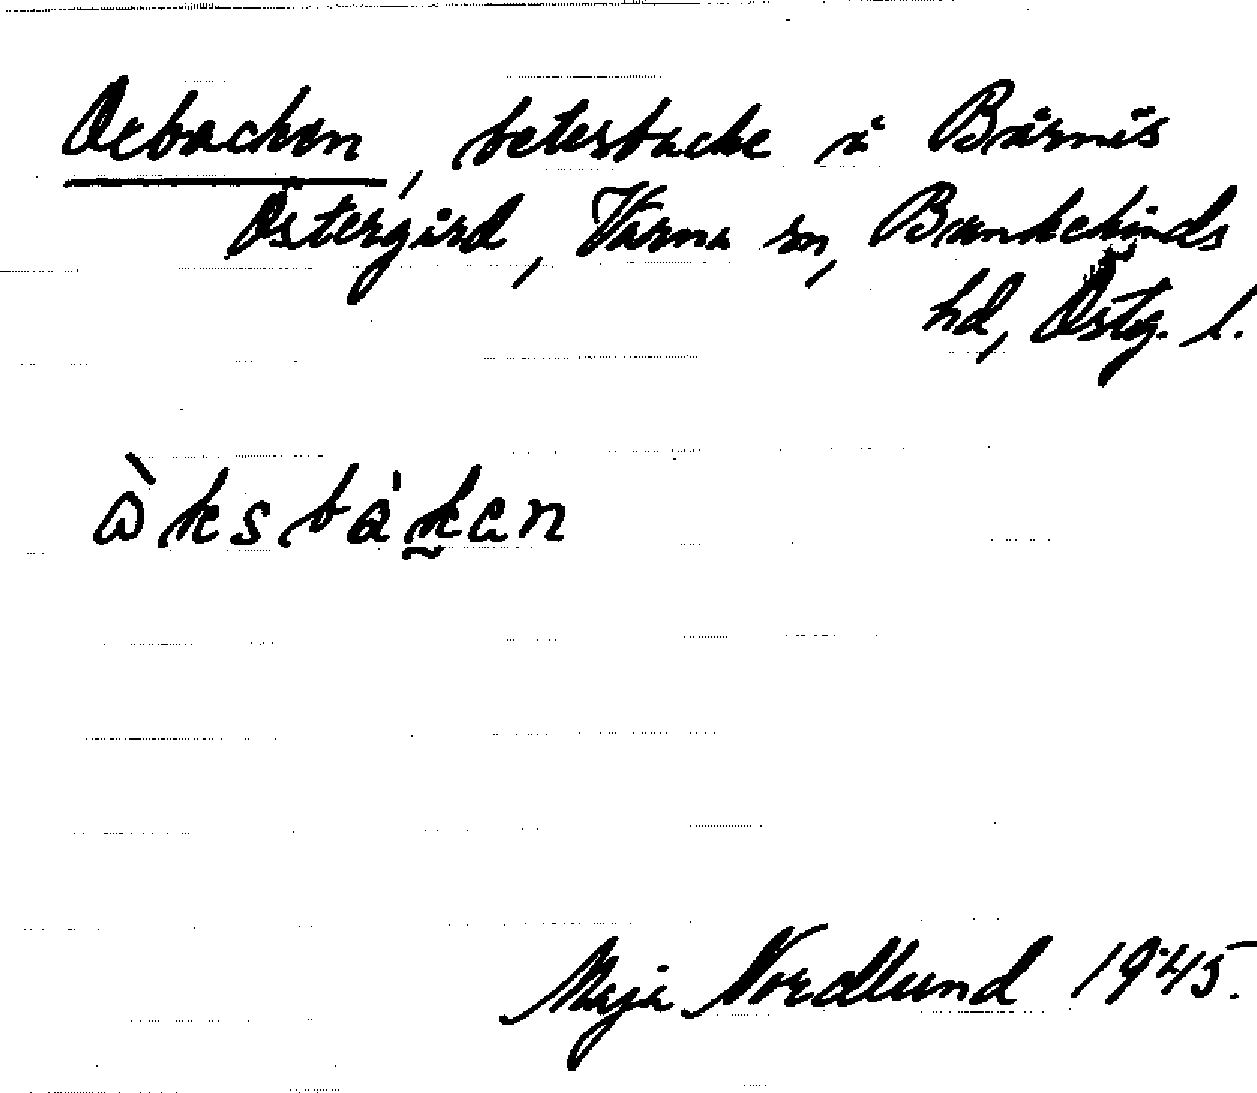 Oxbacken, betesbacke i Bårnäs
Östergård, Värna sn, Bankekinds
hd, Östg. l.
ὼksbàk̰an
Maja Nordlund 1945.